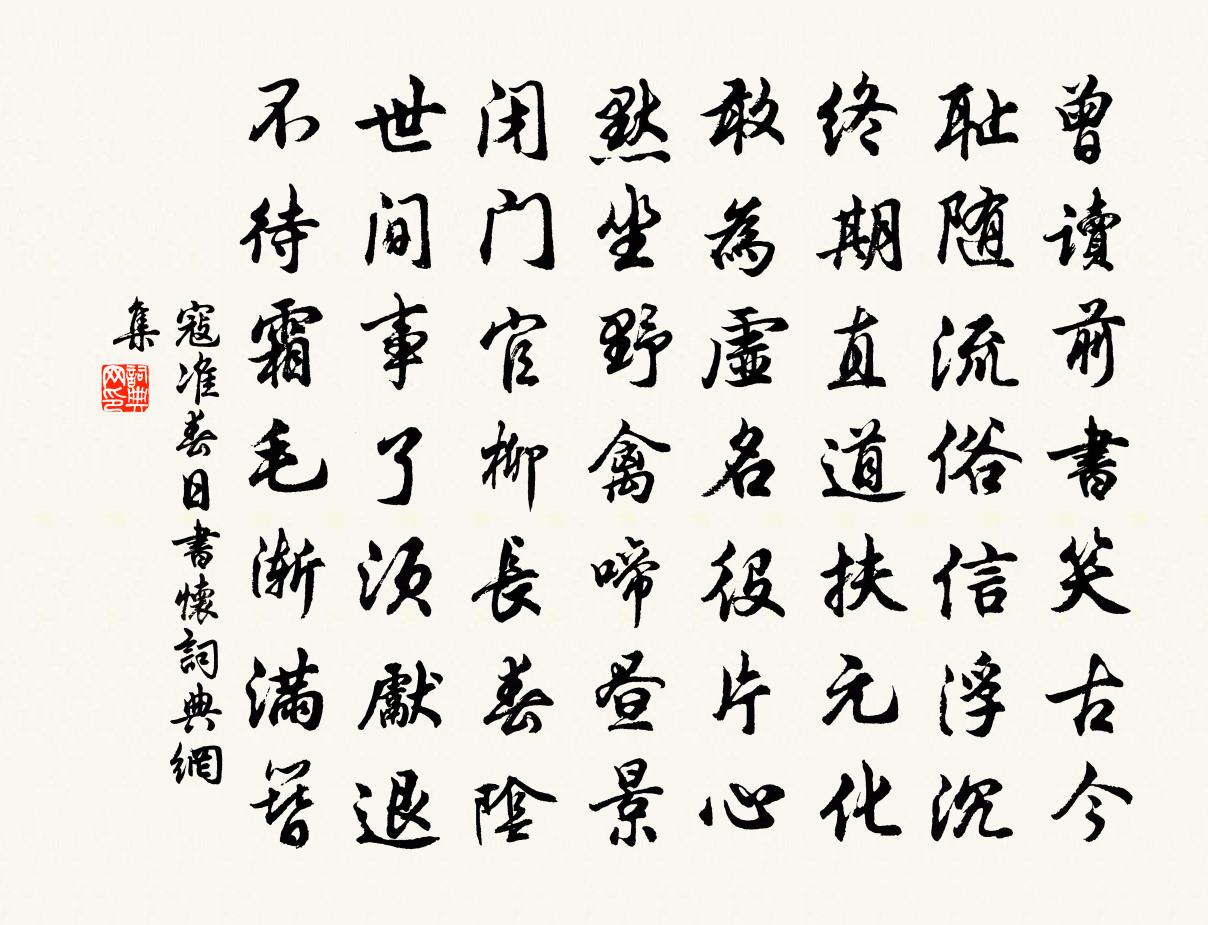 曾讀前書笑古今
耻随流俗信浮沉
終期直道扶元化
敢為虛名役片心
黙坐野禽啼晝景
闭门官柳長春陰
世间事了須獻退
不待霜毛渐满簪
寇准春日書懷詞典網
集
詞典
网印